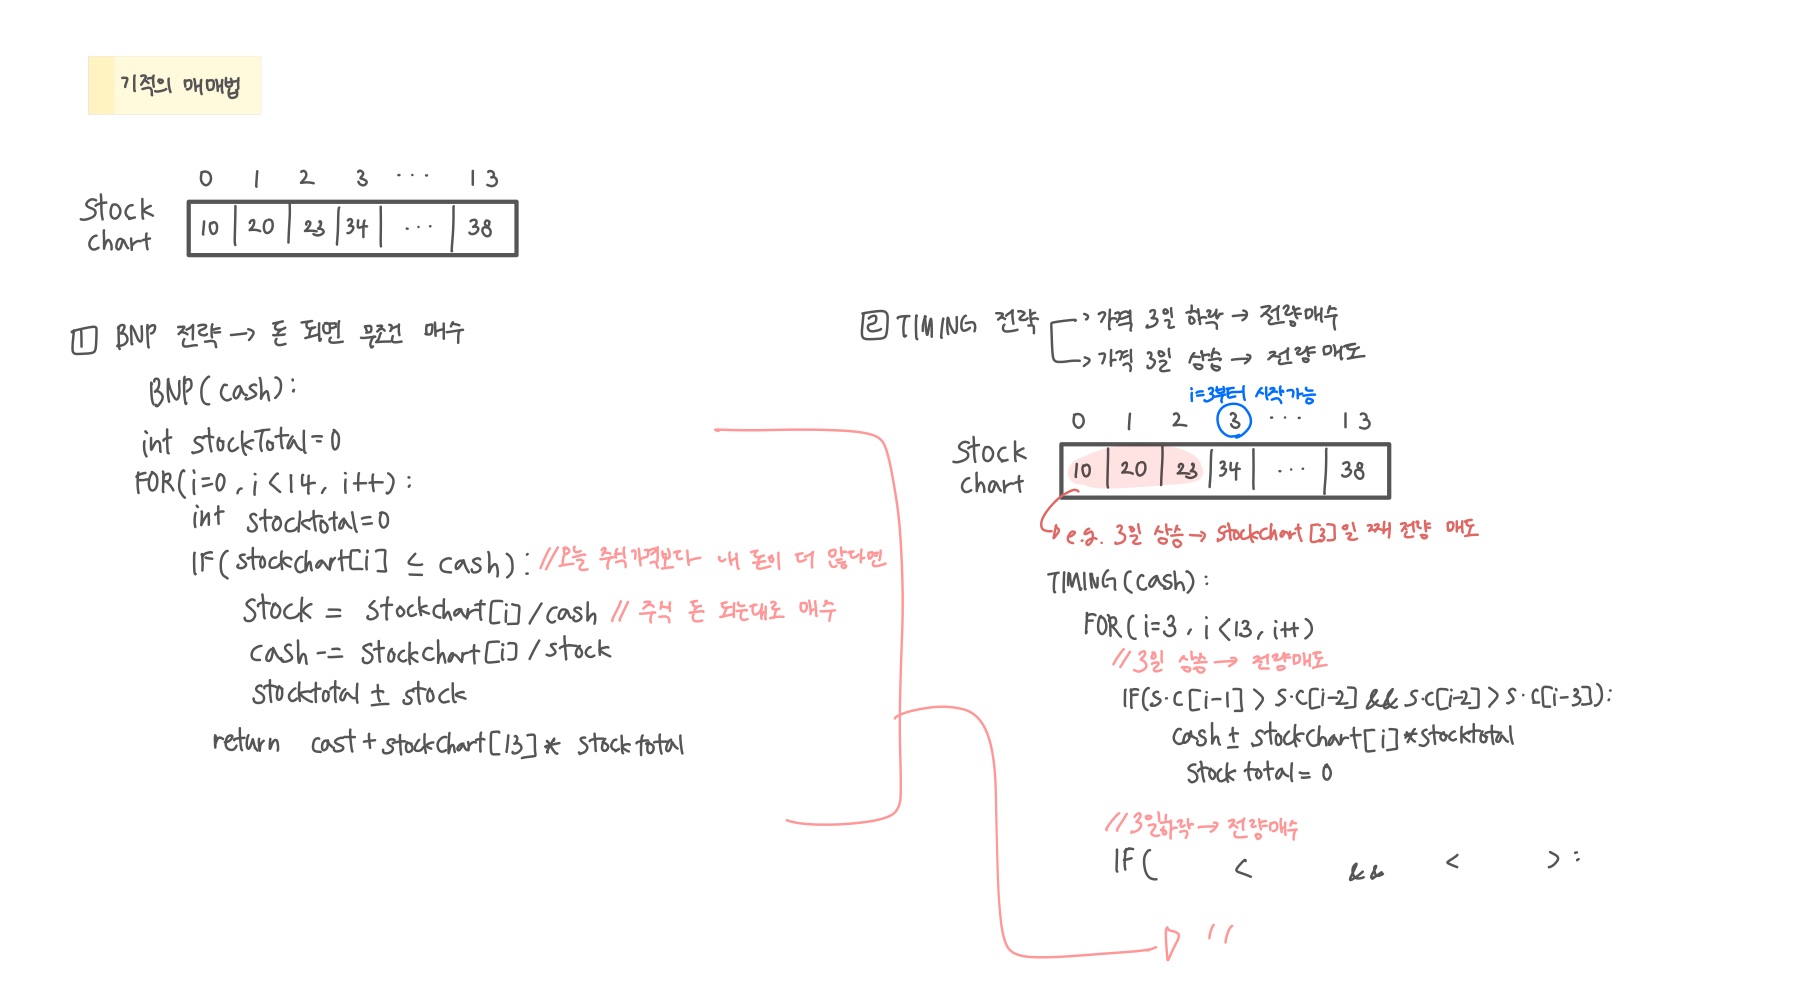 기적의 매매법
0 1 2 3 ... 13
Stock chart
10 20 23 34 ... 38
1 BNP 전략 → 돈 되면 무조건 매수
BNP(cash):
int stockTotal=0
FOR(i=0, i<14, i++):
int stocktotal=0
IF(stockchart[i] ≤ cash): //오늘 주식가격보다 내 돈이 더 많다면
Stock = stockchart[i]/cash // 주식 돈 되는대로 매수
cash -= stockchart[i]/stock
stocktotal ± stock
return cast+stockchart[13]* stocktotal
2 TIMING 전략 → 가격 3일 하락 → 전량매수
→ 가격 3일 상승 → 전량 매도
i=3부터 시작가능
0 1 2 3 ... 13
Stock chart
10 20 23 34 ... 38
e.g. 3일 상승 → stockchart[3]일 째 전량 매도
TIMING(cash):
FOR(i=3, i<13, i++)
//3일 상승 → 전량매도
IF(S.C[i-1] > S.C[i-2] && S.C[i-2] > S.C[i-3]):
cash ± stockchart[i]*stocktotal
Stock total = 0
//3일하락 → 전량매수
IF( < && < ):
"